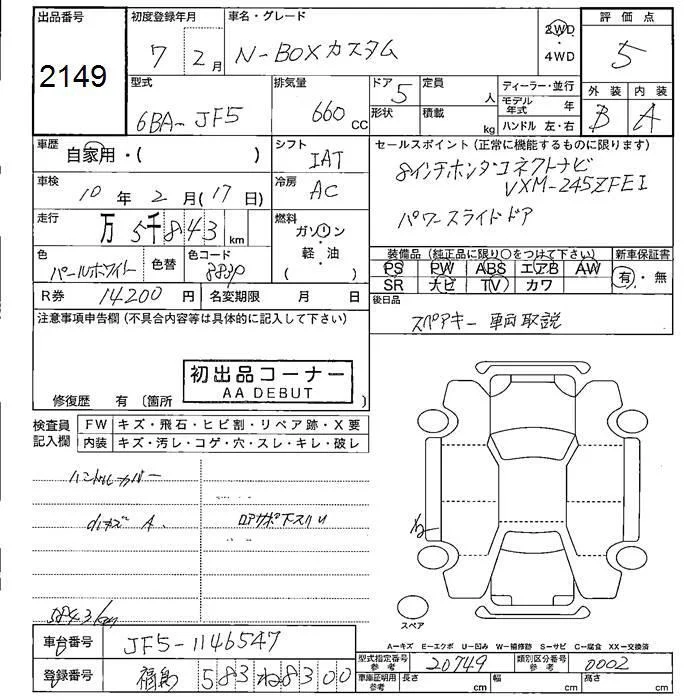 出品番号
2149
初度登録年月
7 2月
車名・グレード
N-BOXカスタム
2WD
・
4WD
評価点
5
型式
6BA-JF5
排気量
660 cc
ドア 5
形状
定員
人
積載
kg
ディーラー・並行
モデル年式 年
ハンドル 左・右
外装
B
内装
A
車歴
自家用・( )
シフト
IAT
車検
10年2月(17日)
冷房
AC
走行
万5千843km
燃料
ガソリン
・
軽・油
( )
色
パールホワイト
色替
色コード
883P
セールスポイント(正常に機能するものに限ります)
8インチホンダコネクトナビ
VXM-245ZFEI
パワースライドドア
装備品(純正品に限り○をつけて下さい)
PS PW ABS エアB AW
SR ナビ TV カワ
新車保証書
有・無
R券 14200円
名変期限 月 日
後日品
スペアキー 車両取説
注意事項申告欄(不具合内容等は具体的に記入して下さい)
初出品コーナー
AA DEBUT
修復歴 有〔箇所 〕
検査員記入欄
FW キズ・飛石・ヒビ割・リペア跡・X要
内装 キズ・汚レ・コゲ・穴・スレ・キレ・破レ
ハンドルカバー
小キズ A
ロアサポ下スリ
5843km
スペア
A−キズ E−エクボ U−凹み W−補修跡 S−サビ C−腐食 XX−交換済
車台番号
JF5-1146547
登録番号
福島 583 ね 8300
型式指定番号
参考
20749
類別区分番号
参考
0002
車庫証明用
参考
長さ cm
幅 cm
高さ cm